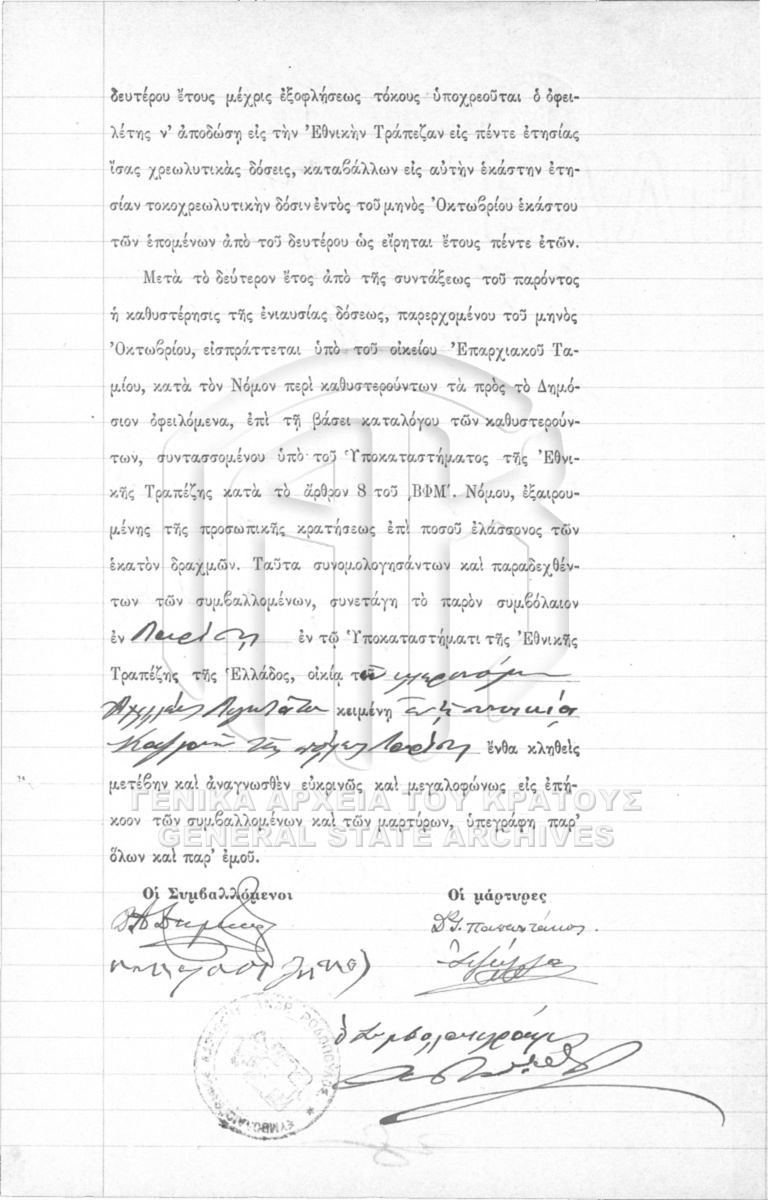 δευτέρου ἔτους μέχρις ἐξοφλήσεως τόκους ὑποχρεοῦται ὁ ὀφει-
λέτης ν’ ἀποδώσῃ εἰς τὴν Ἐθνικὴν Τράπεζαν εἰς πέντε ἐτησίας
ἴσας χρεωλυτικὰς δόσεις, καταβάλλων εἰς αὐτὴν ἑκάστην ἐτη-
σίαν τοκοχρεωλυτικὴν δόσιν ἐντὸς τοῦ μηνὸς Ὀκτωβρίου ἑκάστου
τῶν ἑπομένων ἀπὸ τοῦ δευτέρου ὡς εἴρηται ἔτους πέντε ἐτῶν.
Μετὰ τὸ δεύτερον ἔτος ἀπὸ τῆς συντάξεως τοῦ παρόντος
ἡ καθυστέρησις τῆς ἐνιαυσίας δόσεως, παρερχομένου τοῦ μηνὸς
Ὀκτωβρίου, εἰσπράττεται ὑπὸ τοῦ οἰκείου Ἐπαρχιακοῦ Τα-
μίου, κατὰ τὸν Νόμον περὶ καθυστερούντων τὰ πρὸς τὸ Δημό-
σιον ὀφειλόμενα, ἐπὶ τῇ βάσει καταλόγου τῶν καθυστερούν-
των, συντασσομένου ὑπὸ τοῦ Ὑποκαταστήματος τῆς Ἐθνι-
κῆς Τραπέζης κατὰ τὸ ἄρθρον 8 τοῦ ͵ΒΦΜ΄. Νόμου, ἐξαιρου-
μένης τῆς προσωπικῆς κρατήσεως ἐπὶ ποσοῦ ἐλάσσονος τῶν
ἑκατὸν δραχμῶν. Ταῦτα συνομολογησάντων καὶ παραδεχθέν-
των τῶν συμβαλλομένων, συνετάγη τὸ παρὸν συμβόλαιον
ἐν Λαρίσῃ ἐν τῷ Ὑποκαταστήματι τῆς Ἐθνικῆς
Τραπέζης τῆς Ἑλλάδος, οἰκίᾳ τῶν κληρονόμων
Ἀχιλλέως κειμένῃ ἐν τῇ συνοικίᾳ
τῆς πόλεως Λαρίσης ἔνθα κληθεὶς
μετέβην καὶ ἀναγνωσθὲν εὐκρινῶς καὶ μεγαλοφώνως εἰς ἐπή-
κοον τῶν συμβαλλομένων καὶ τῶν μαρτύρων, ὑπεγράφη παρ’
ὅλων καὶ παρ’ ἐμοῦ.
ΓΕΝΙΚΑ ΑΡΧΕΙΑ ΤΟΥ ΚΡΑΤΟΥΣ
GENERAL STATE ARCHIVES
Οἱ Συμβαλλόμενοι Οἱ μάρτυρες
ὁ Συμβολαιογράφος
ΑΝΔΡ. ΡΟΔΟΠΟΥΛΟΣ